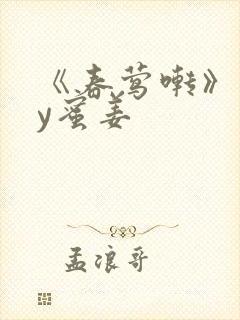 《春莺啭》
y蜜姜
孟浪哥